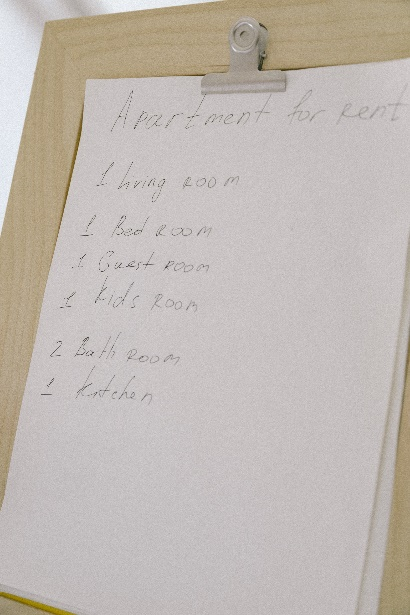 Apartment for rent
1 living room
1 Bed room
1 Guest room
1 Kids room
2 Bath room
1 kitchen